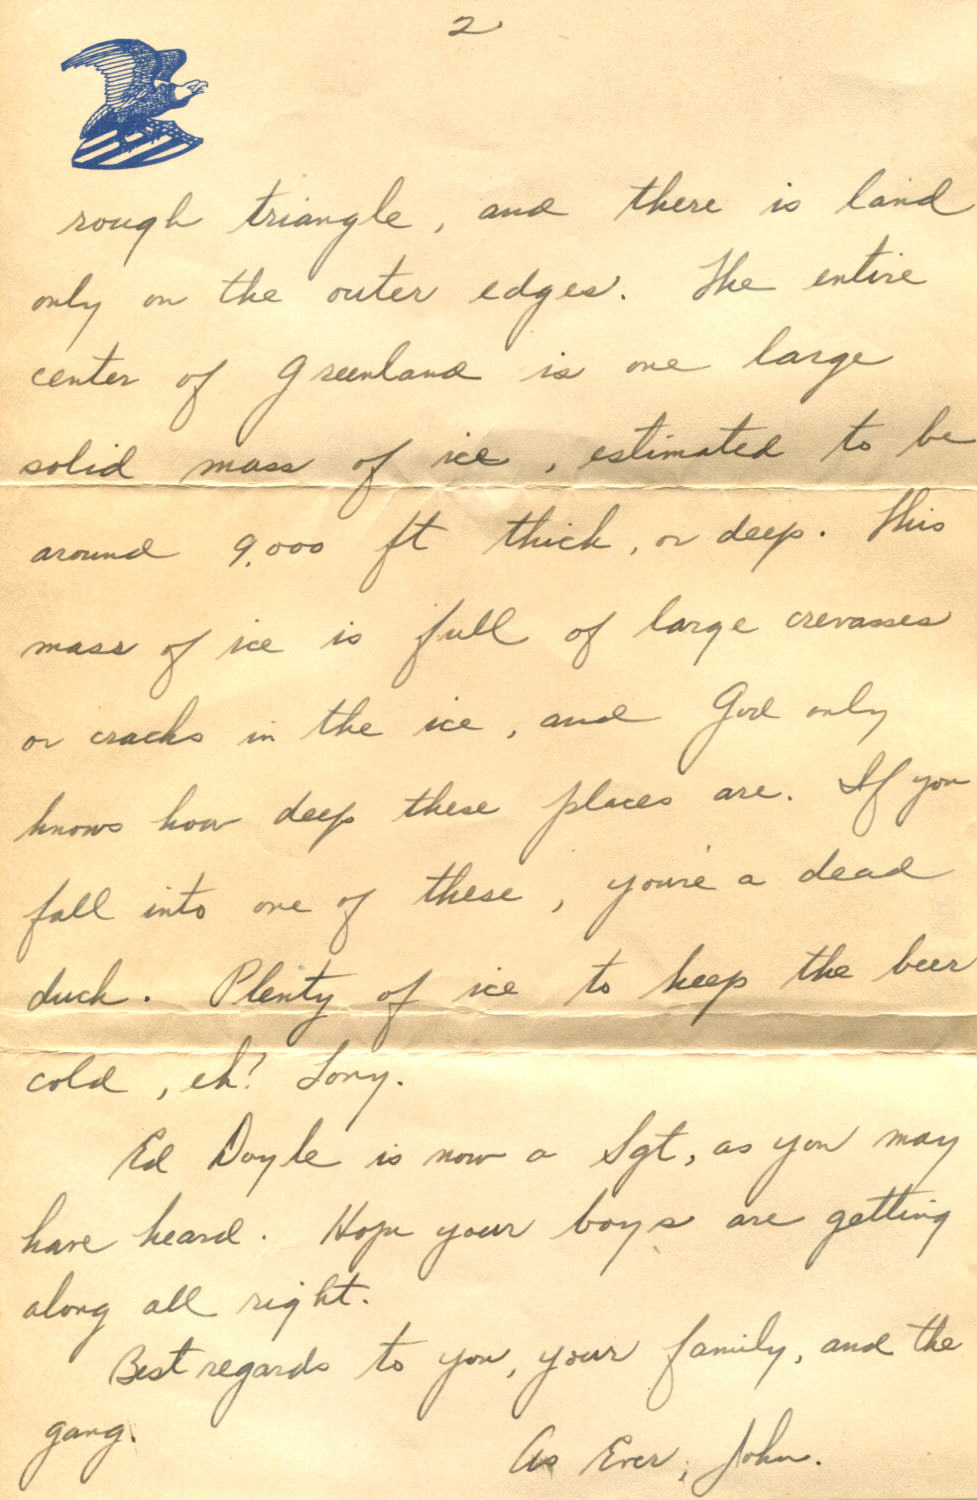 2
rough triangle, and there is land
only on the outer edges. The entire
center of Greenland is one large
solid mass of ice, estimated to be
around 9,000 ft thick, or deep. This
mass of ice is full of large crevasses
or cracks in the ice, and God only
knows how deep these places are. If you
fall into one of these, you're a dead
duck. Plenty of ice to keep the beer
cold, eh? Tony.
Ed Doyle is now a Sgt, as you may
have heard. Hope your boys are getting
along all right.
Best regards to you, your family, and the
gang.
As Ever, John.